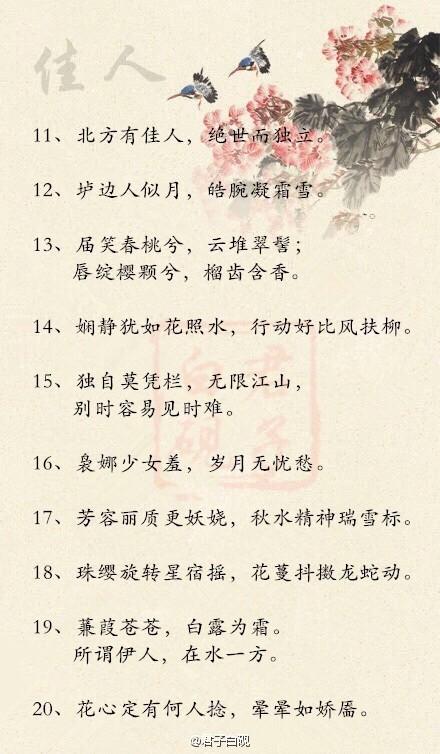 佳人
11、北方有佳人，绝世而独立。
12、垆边人似月，皓腕凝霜雪。
13、届笑春桃兮，云堆翠髻；
唇绽樱颗兮，榴齿含香。
14、娴静犹如花照水，行动好比风扶柳。
15、独自莫凭栏，无限江山，
别时容易见时难。
16、袅娜少女羞，岁月无忧愁。
17、芳容丽质更妖娆，秋水精神瑞雪标。
18、珠缨旋转星宿摇，花蔓抖擞龙蛇动。
19、蒹葭苍苍，白露为霜。
所谓伊人，在水一方。
20、花心定有何人捻，晕晕如娇靥。
君子白砚
@君子白砚